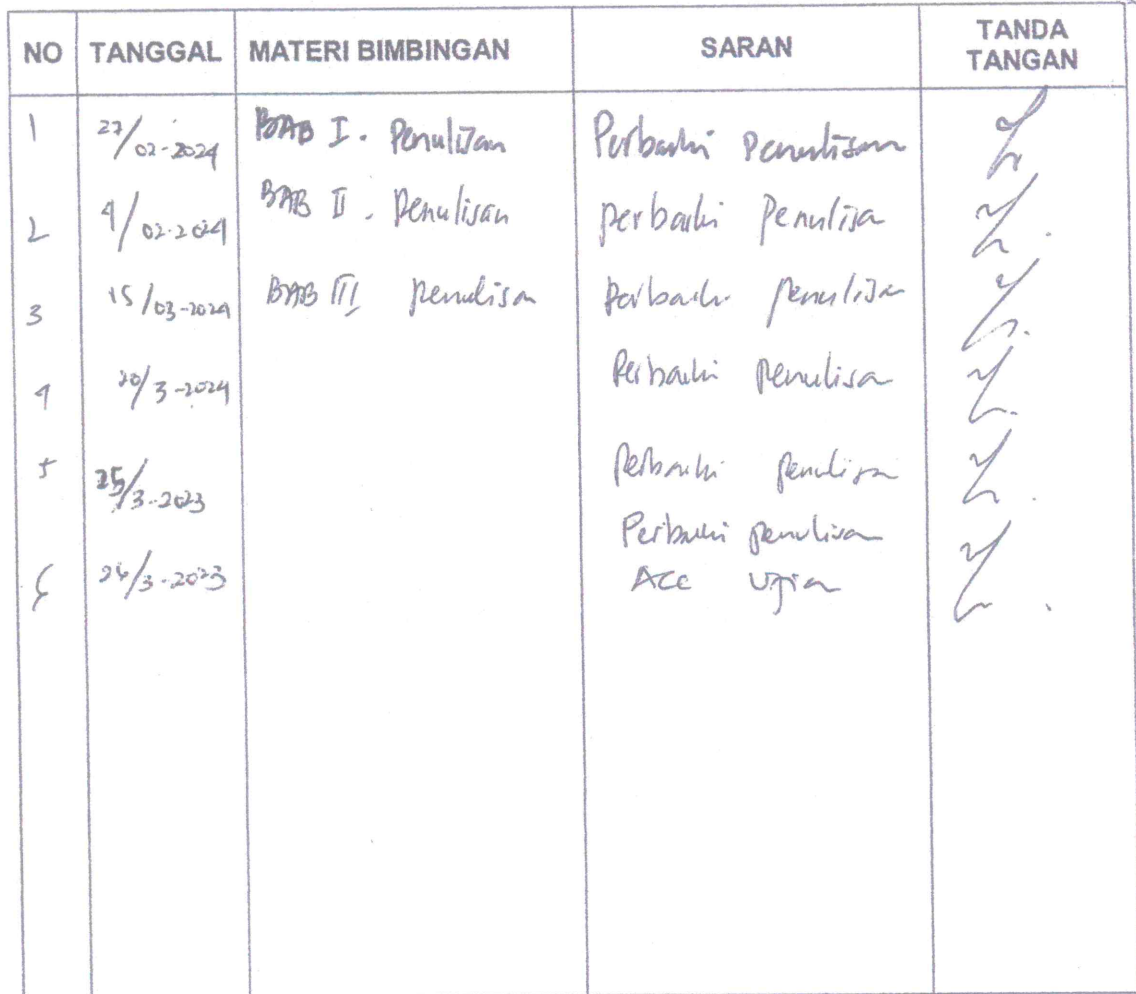 NO TANGGAL MATERI BIMBINGAN SARAN TANDA TANGAN
1 27/02-2024 BAB I. Penulisan Perbaiki Penulisan
2 4/02-2024 BAB II. Penulisan perbaiki Penulisa
3 15/03-2024 BAB III penulisan Perbaiki penulisan
4 20/3-2024 Perbaiki Penulisa
5 25/3-2023 Perbaiki penulisa
Perbaiki penulisa
6 26/3-2023 ACC Ujian